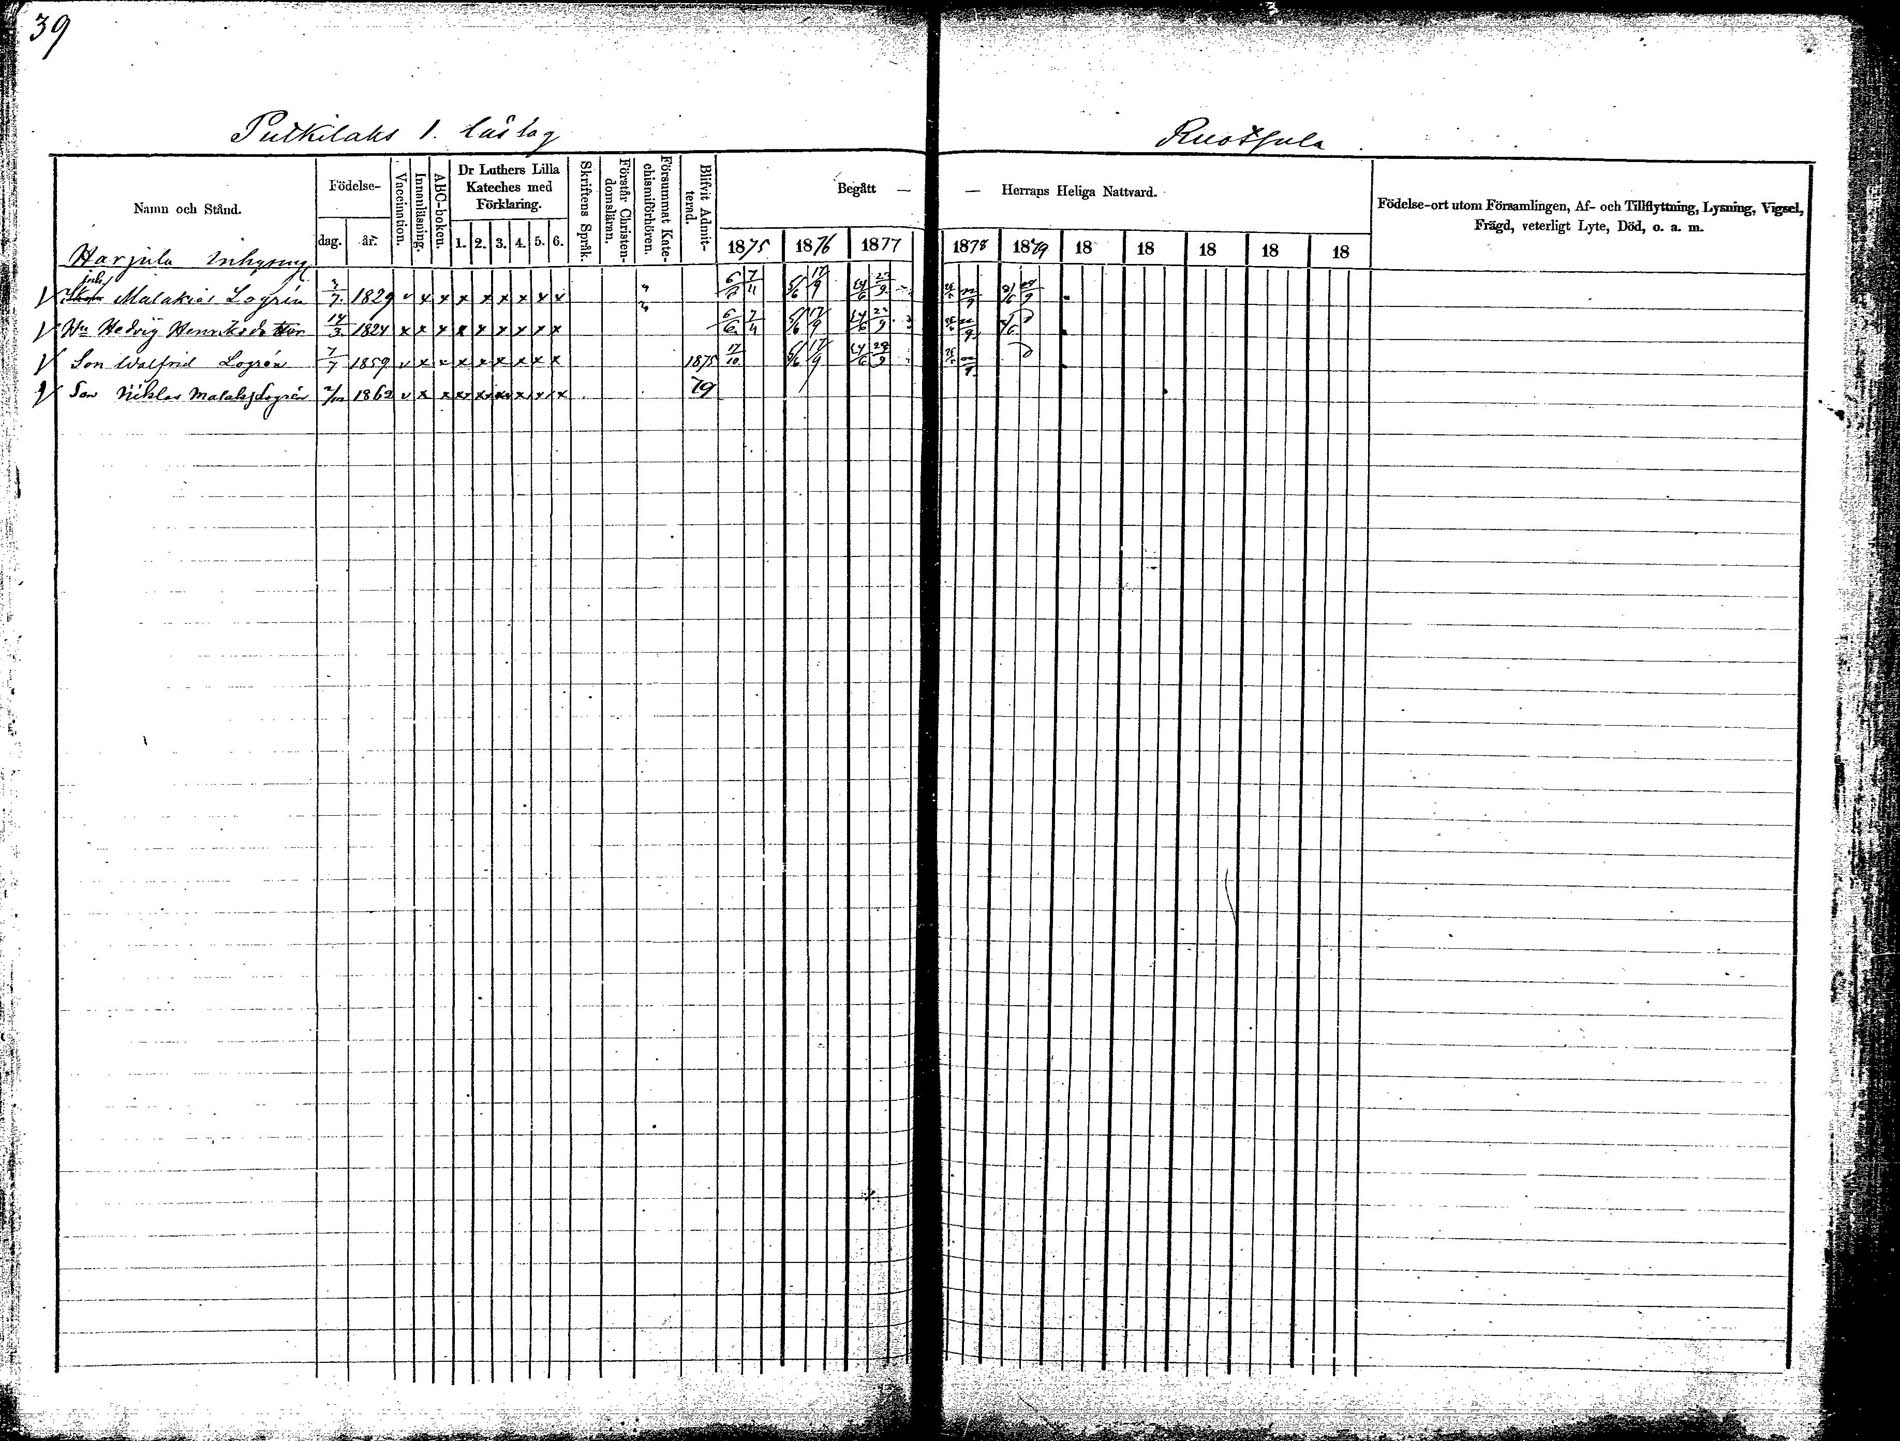 39
Putkilaks 1. lästag
Ruotjula
Namn och Stånd.
Födelse-
dag.
år.
Vaccination.
Innanläsning.
ABC-boken.
Dr Luthers Lilla Kateches med Förklaring.
1. 2. 3. 4. 5. 6.
Skriftens Språk.
Förstår Christendomsläran.
Försummat Katechismiförhören.
Blifvit Admitterad.
Begått — — Herrans Heliga Nattvard.
1875 1876 1877 1878 1879 18 18 18 18 18
Födelse-ort utom Församlingen, Af- och Tillflyttning, Lysning, Vigsel,
Frägd, veterligt Lyte, Död, o. a. m.
Harjula inhysing
Malakias Logrén 1829 v x x x x x x x x 6/6 7/11 5/6 17/9 24/6 23/9
Hu Hedvig Henriksdotter 14/3 1824 x x x x x x x x x 6/6 7/11 5/6 17/9 24/6 23/9
Son Walfrid Logrén 7/7 1859 v x x x x x x x x 1875 17/10 5/6 17/9 24/6 23/9
Son Niklas Malaks Logrén 1862 v x x x x x x x x 79